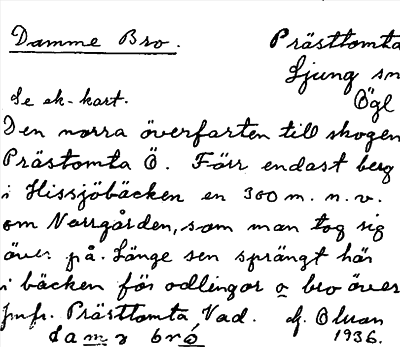 Damme Bro. Prästtomta
Ljung sn
Se ek-kart. Ögl
Den norra överfarten till skogen
Prästomta Ö. Förr endast berg
i Hissjöbäcken en 300 m. n. v.
om Norrgården, som man tog sig
över på. Länge sen sprängt här
i bäcken för odlingar o bro över
Jmfr. Prästtomta Vad.
damə bró 1936.